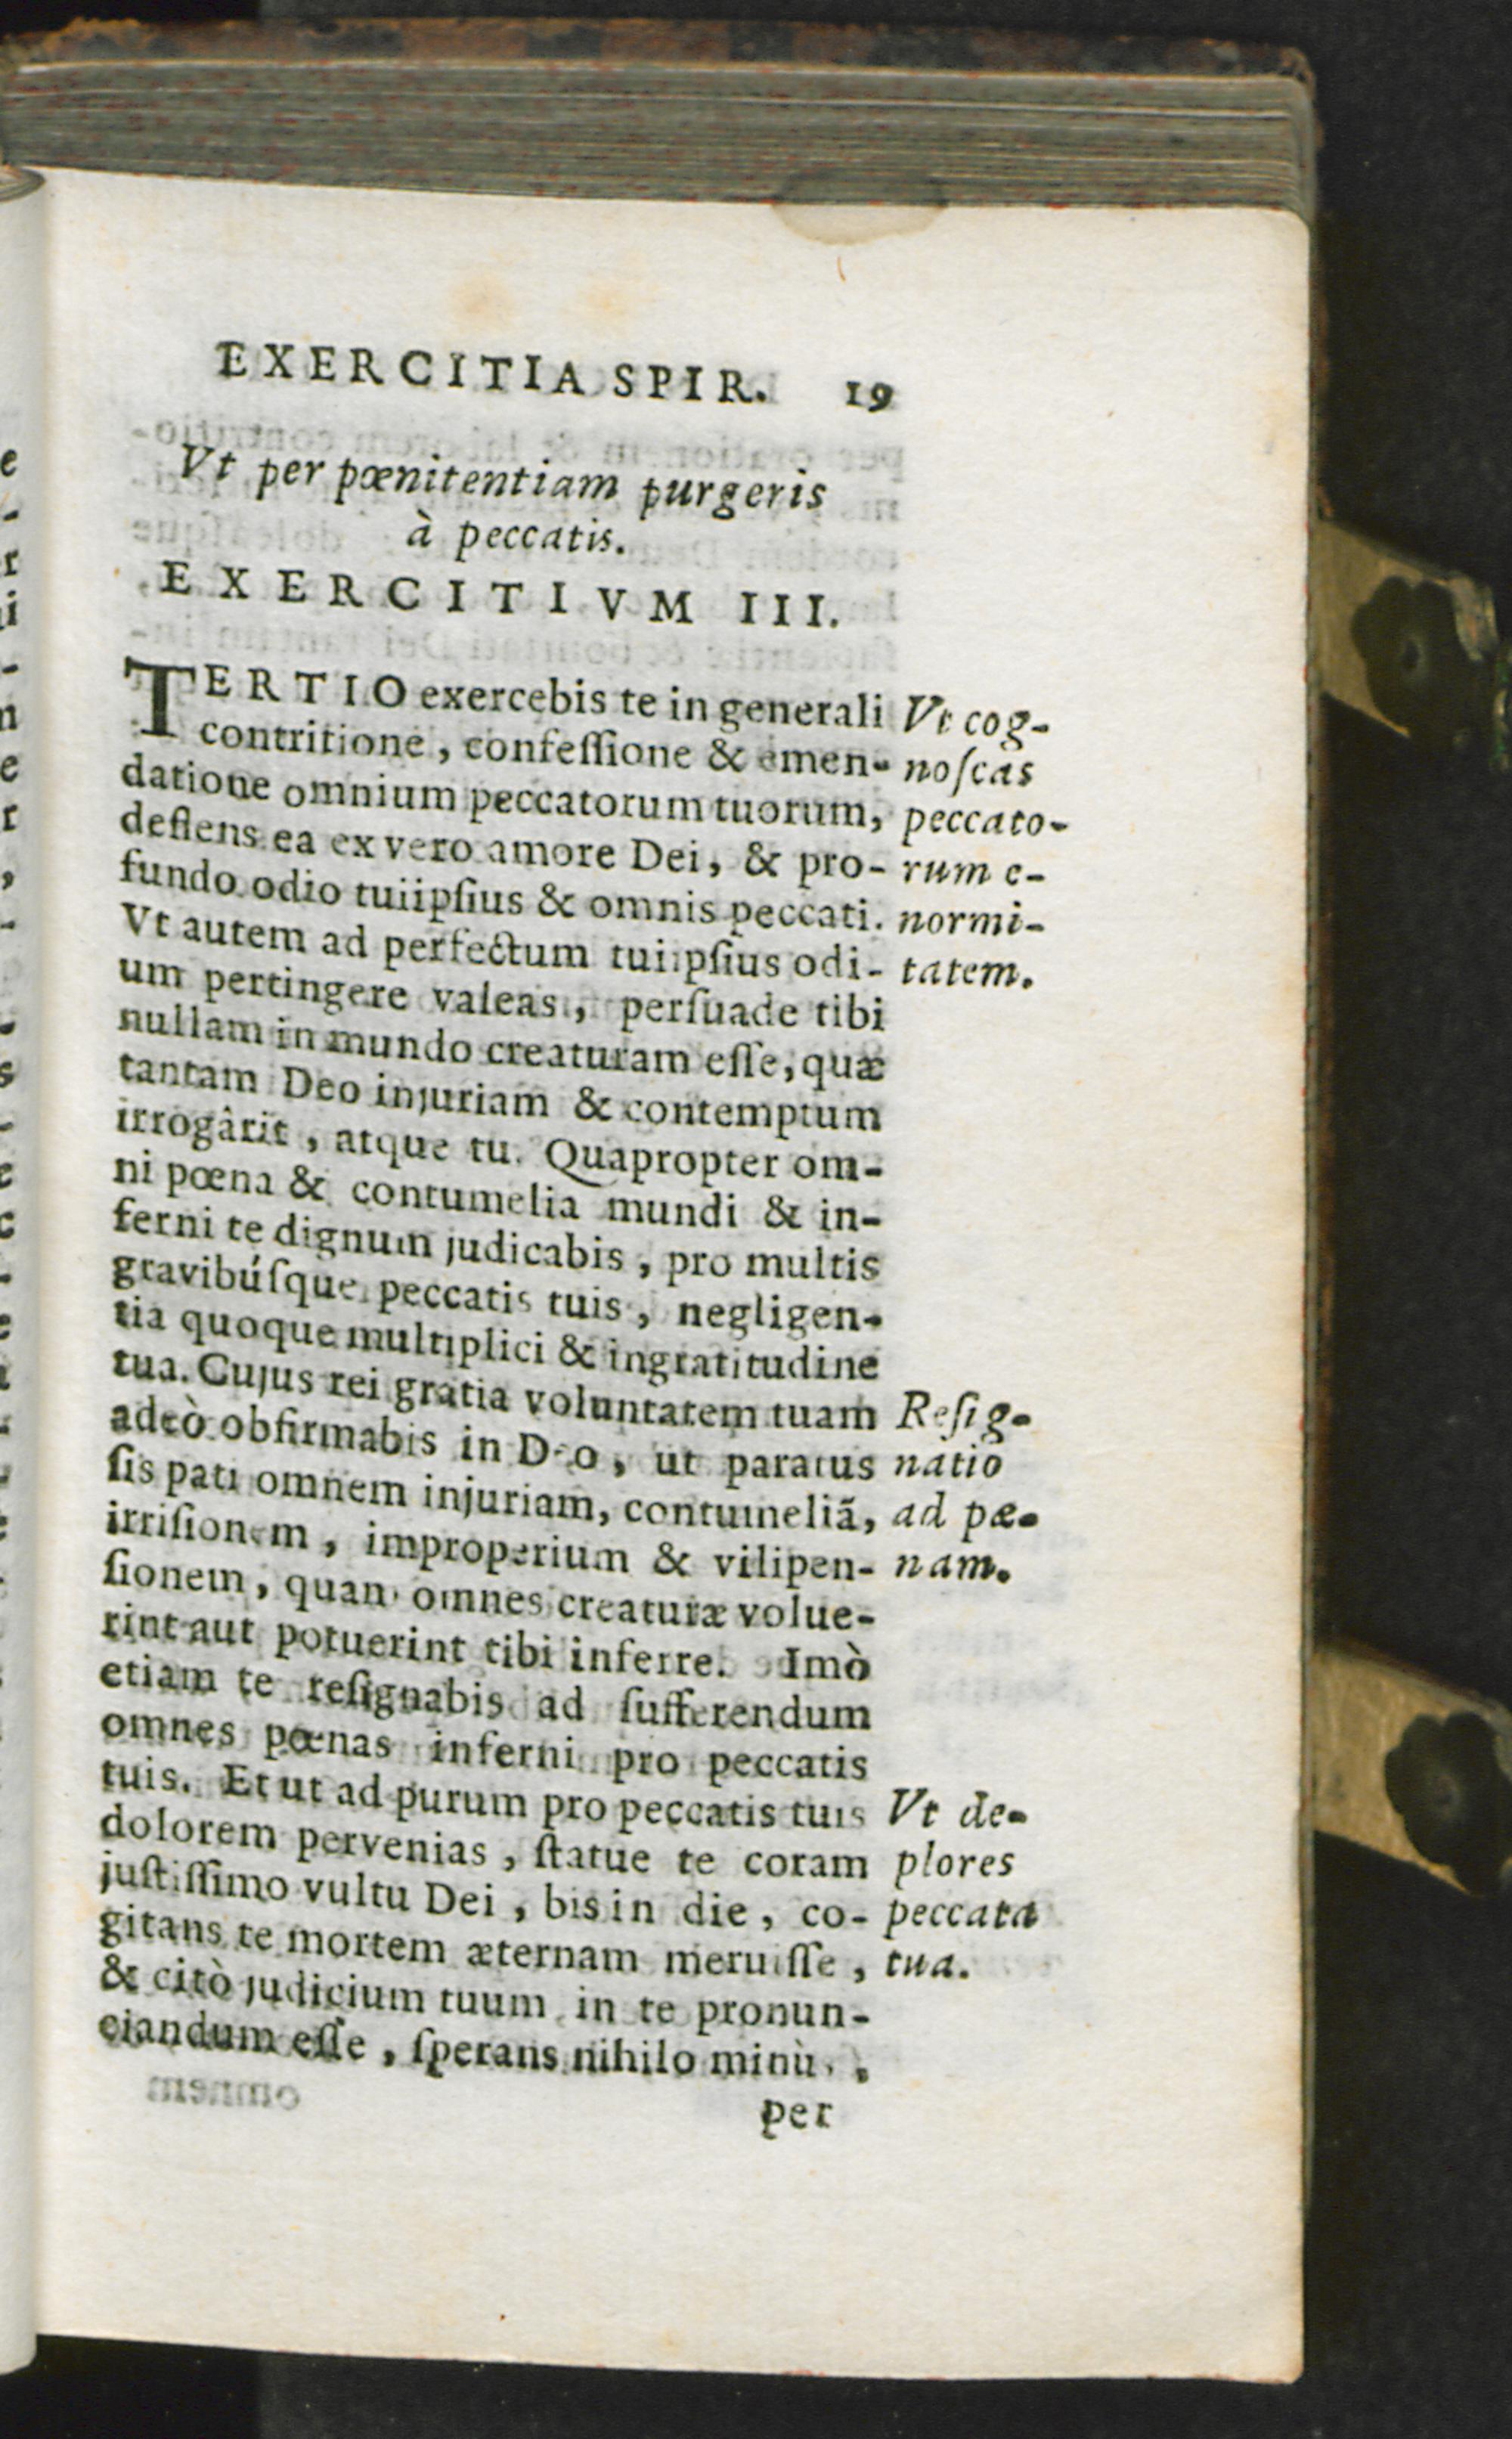 EXERCITIA SPIR. 19
Vt per pœnitentiam purgeris
à peccatis.
EXERCITIVM III.
TERTIO exercebis te in generali
contritione, confeſſione & emen-
datione omnium peccatorum tuorum,
deflens ea ex vero amore Dei, & pro-
fundo odio tuiipſius & omnis peccati.
Vt autem ad perfectum tuiipſius odi-
um pertingere valeas, perſuade tibi
nullam in mundo creaturam eſſe, quæ
tantam Deo injuriam & contemptum
irrogârit, atque tu. Quapropter om-
ni pœna & contumelia mundi & in-
ferni te dignum judicabis, pro multis
gravibúſque peccatis tuis, negligen-
tia quoque multiplici & ingratitudine
tua. Cujus rei gratia voluntatem tuam
adeò obfirmabis in Deo, ut paratus
ſis pati omnem injuriam, contumeliã,
irriſionem, improperium & vilipen-
ſionem, quam omnes creaturæ volue-
rint aut potuerint tibi inferre. Imò
etiam te reſignabis ad ſufferendum
omnes pœnas inferni pro peccatis
tuis. Et ut ad purum pro peccatis tuis
dolorem pervenias, ſtatue te coram
juſtiſſimo vultu Dei, bis in die, co-
gitans te mortem æternam meruiſſe,
& citò judicium tuum in te pronun-
ciandum eſſe, ſperans nihilo minùs,
per
Vt cog-
noſcas
peccato-
rum e-
normi-
tatem.
Reſig-
natio
ad pœ-
nam.
Vt de-
plores
peccata
tua.